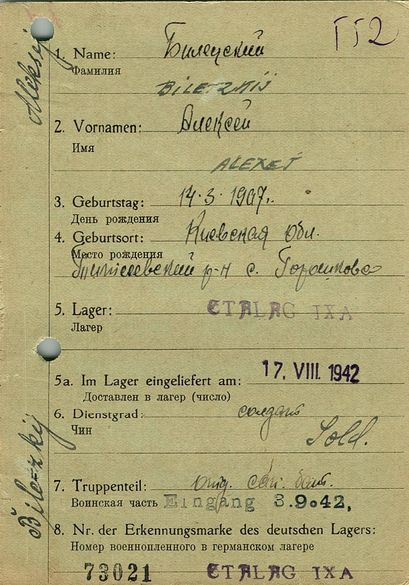 Aleksej
ГГ2
1. Name: Билецкий
Фамилия
BILEZKIJ
2. Vornamen: Алексей
Имя
ALEXEJ
3. Geburtstag: 14.3.1907г.
День рождения
4. Geburtsort: Киевская обл.
Место рождения
р-н с.
5. Lager: STALAG IXA
Лагерь
5a. Im Lager eingeliefert am: 17. VIII. 1942
Доставлен в лагерь (число)
6. Dienstgrad: солдат
Чин
Sold.
Bilezkij
7. Truppenteil: отд. бат.
Воинская часть Eingang 3.9.42,
8. Nr. der Erkennungsmarke des deutschen Lagers:
Номер военнопленного в германском лагере
73021 STALAG IXA